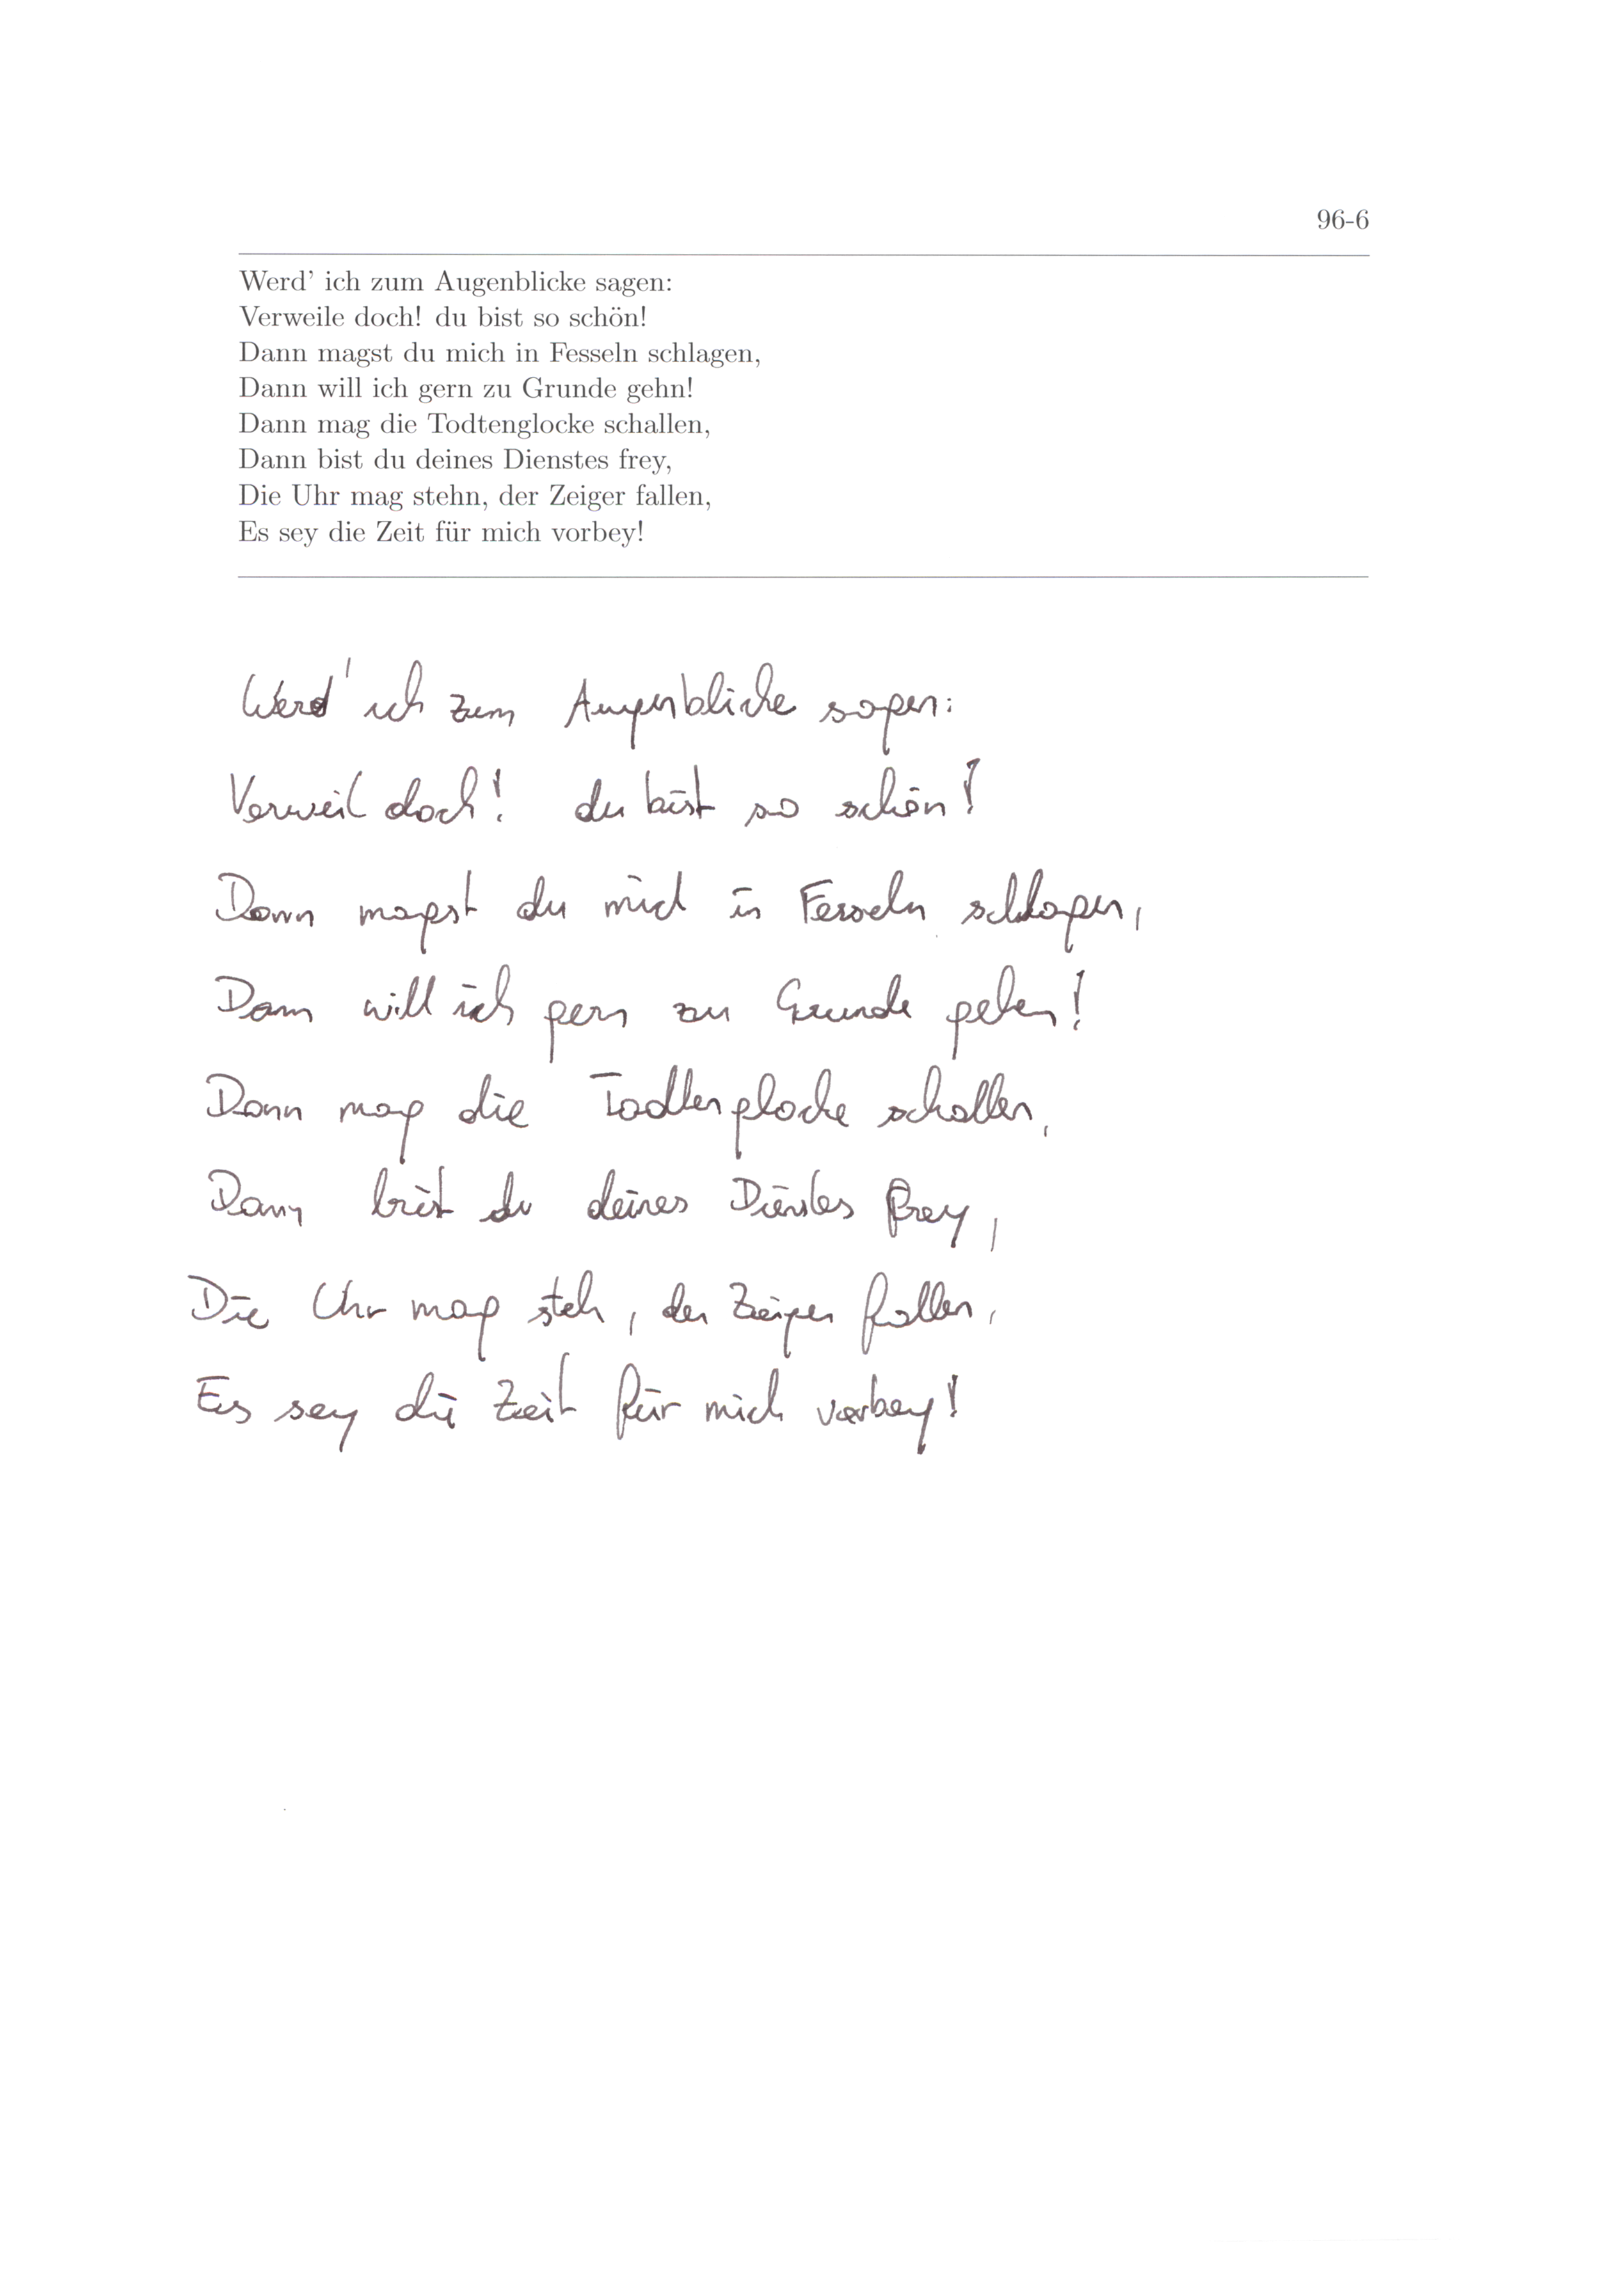 96-6
Werd' ich zum Augenblicke sagen:
Verweile doch! du bist so schön!
Dann magst du mich in Fesseln schlagen,
Dann will ich gern zu Grunde gehn!
Dann mag die Todtenglocke schallen,
Dann bist du deines Dienstes frey,
Die Uhr mag stehn, der Zeiger fallen,
Es sey die Zeit für mich vorbey!
Werd' ich zum Augenblicke sagen:
Verweil doch! du bist so schön!
Dann magst du mich in Fesseln schlagen,
Dann will ich gern zu Grunde gehen!
Dann mag die Todtenglocke schallen,
Dann bist du deines Dienstes frey,
Die Uhr mag steh, der Zeiger fallen,
Es sey die Zeit für mich vorbey!